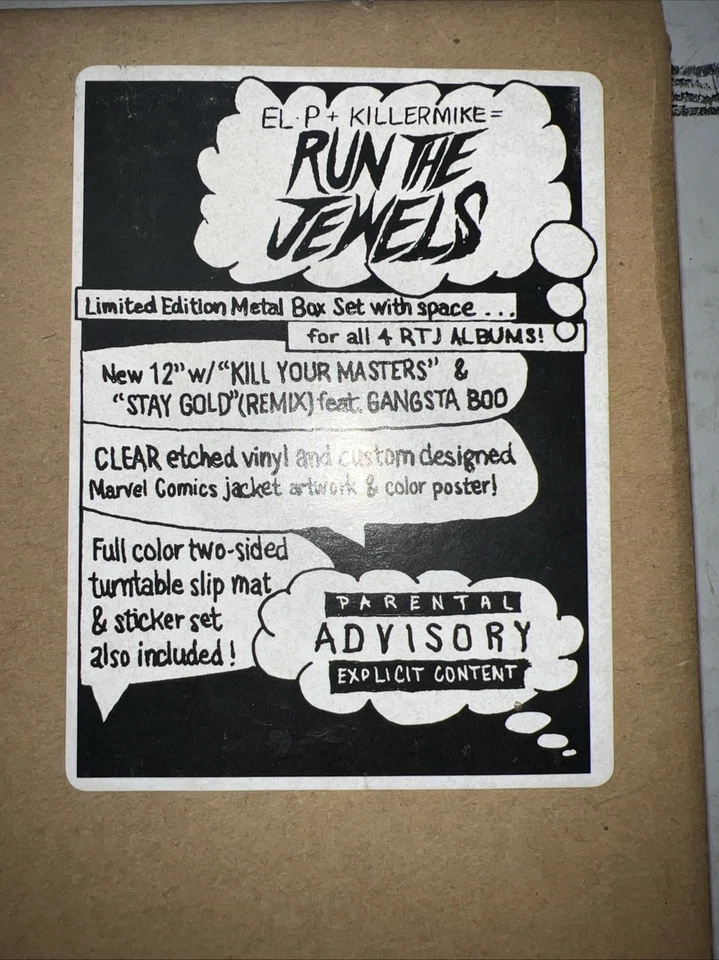 EL-P + KILLERMIKE=
RUN THE
JEWELS
Limited Edition Metal Box Set with space ...
for all 4 RTJ ALBUMS!
New 12" w/ "KILL YOUR MASTERS" &
"STAY GOLD" (REMIX) feat. GANGSTA BOO
CLEAR etched vinyl and custom designed
Marvel Comics jacket artwork & color poster!
Full color two-sided
turntable slip mat
& sticker set
also included!
PARENTAL
ADVISORY
EXPLICIT CONTENT